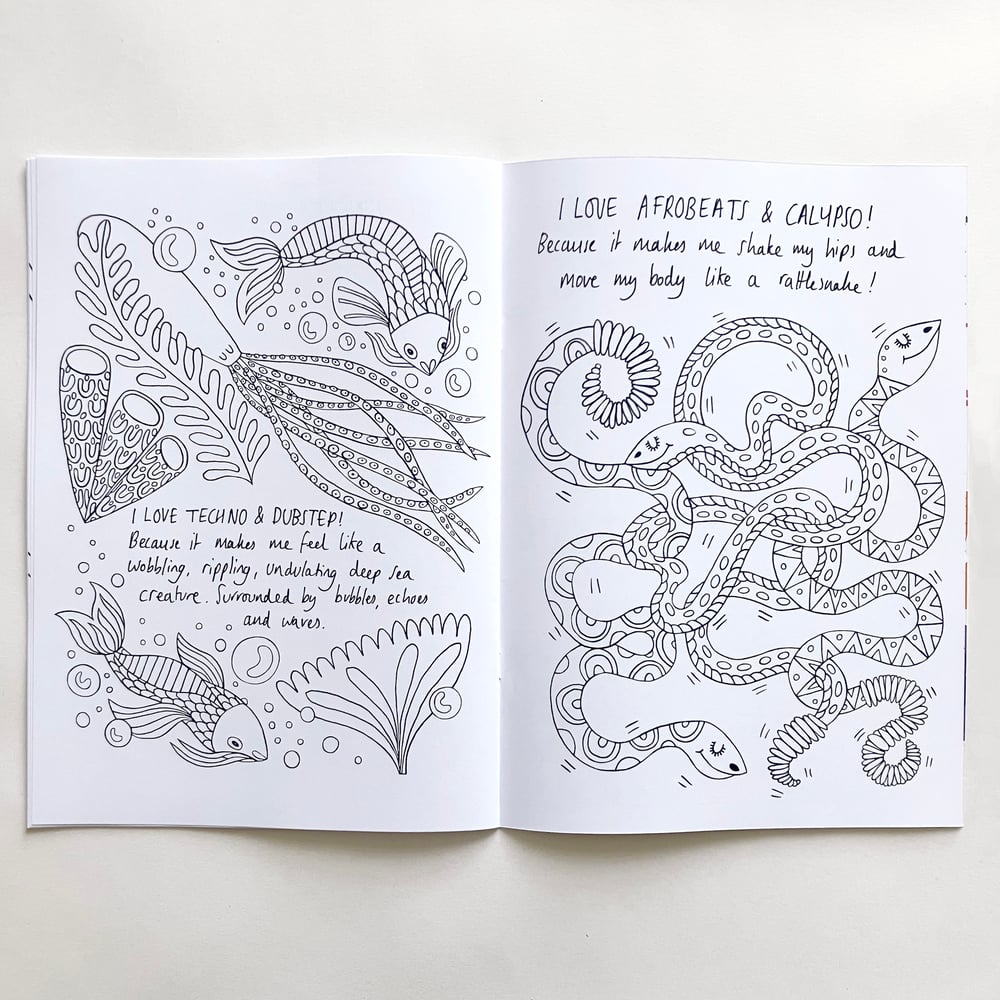 I LOVE TECHNO & DUBSTEP!
Because it makes me feel like a
wobbling, rippling, undulating deep sea
creature. Surrounded by bubbles, echoes
and waves.
I LOVE AFROBEATS & CALYPSO!
Because it makes me shake my hips and
move my body like a rattlesnake!